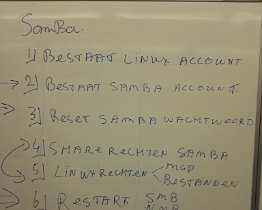 SamBa.
1) BESTAAT LINUX ACCOUNT
2) BESTAAT SAMBA ACCOUNT.
3) RESET SAMBA WACHTWOORD
4) SHARE RECHTEN SAMBA
5) LINUX RECHTEN map
BESTANDEN
6) RESTART SMB
NMB